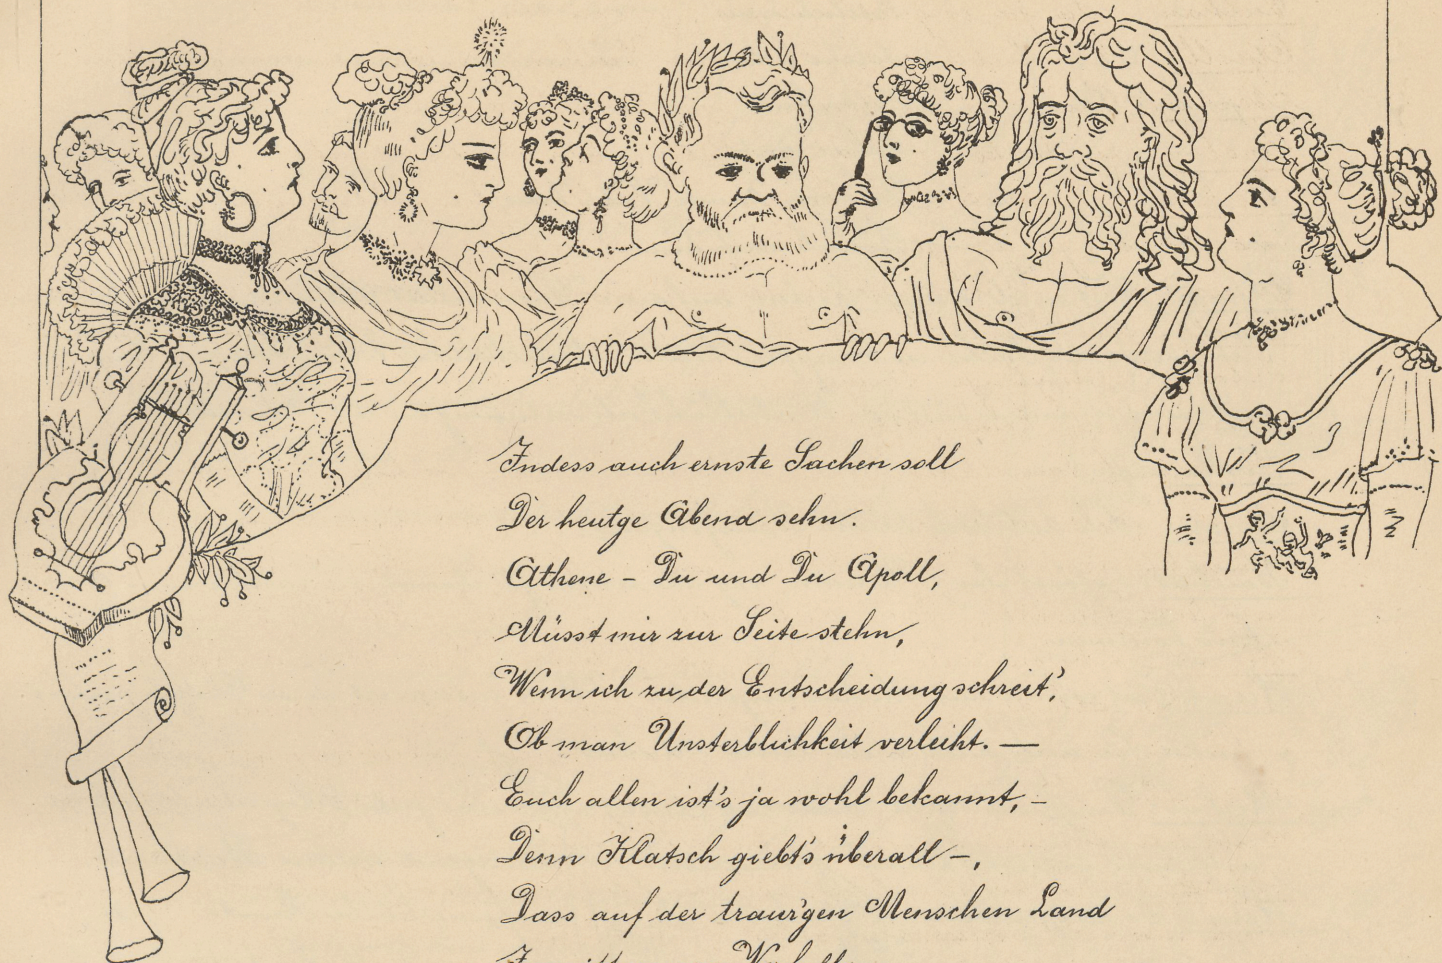 Indess auch ernste Sachen soll
Der heutge Abend sehn.
Athene – Du und Du Apoll,
Müsst mir zur Seite stehn,
Wenn ich zu der Entscheidung schreit',
Ob man Unsterblichkeit verleiht. —
Euch allen ist's ja wohl bekannt, –
Denn Klatsch giebt's überall –,
Dass auf der traur'gen Menschen Land